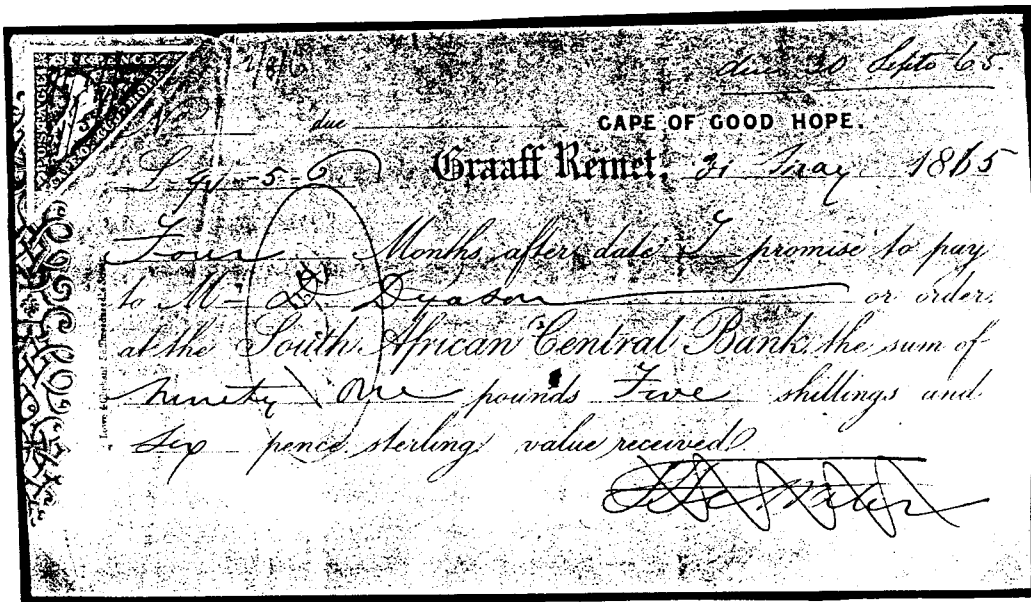 SIX PENCE
POSTAGE
CAPE OF GOOD HOPE
due 30 Septr 65.
No due
CAPE OF GOOD HOPE.
£ 91-5-6 Graaff Reinet, 31 May 1865
Four Months after date I promise to pay
to Mr D. Dyason or order,
at the South African Central Bank, the sum of
Ninety One pounds Five shillings and
Six pence sterling value received